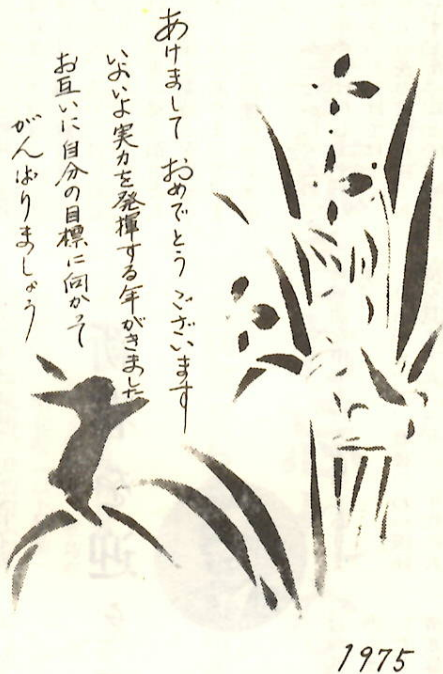 あけまして おめでとう ございます
いよいよ実力を発揮する年がきました
お互いに自分の目標に向かって
がんばりましょう
1975